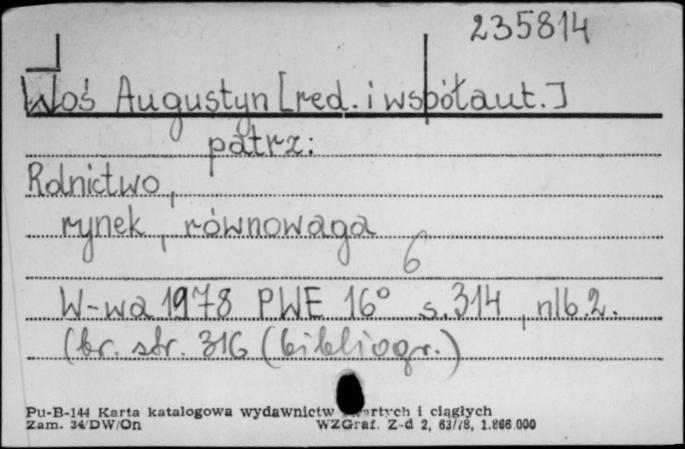 235814
Woś Augustyn [red. i współaut.]
patrz:
Rolnictwo,
rynek, równowaga
6
W-wa 1978 PWE 16° s. 314, nlb. 2.
(br. str. 316 (bibliogr.)
Pu-B-144 Karta katalogowa wydawnictw zwartych i ciągłych
Zam. 34/DW/On WZGraf. Z-d 2, 63/78, 1.866.000